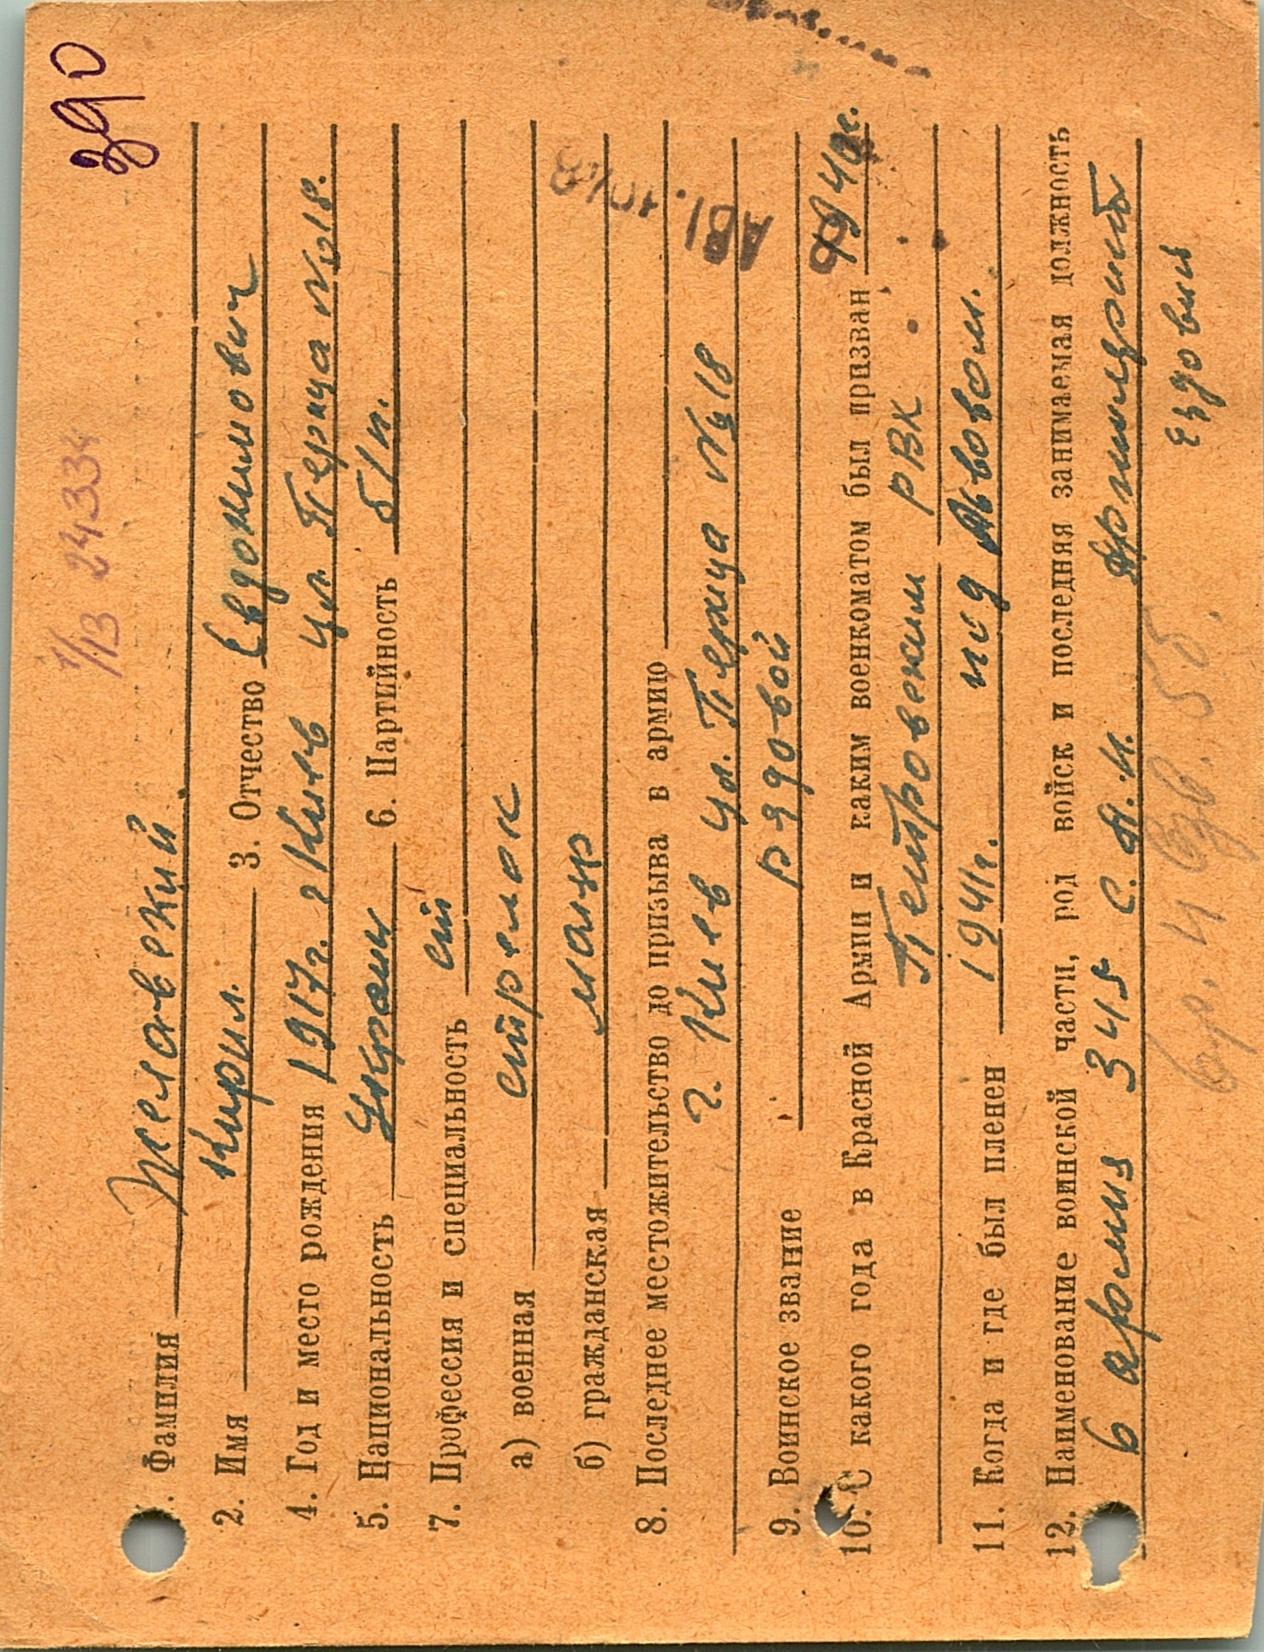 290
1/13 24334
1. Фамилия Жеславский.
2. Имя Кирил. 3. Отчество Евдокимович
4. Год и место рождения 1917 г. г Киев ул. Перица №18.
5. Национальность Украин 6. Партийность б/п.
7. Профессия и специальность
а) военная стрелок
б) гражданская
8. Последнее местожительство до призыва в армию
г. Киев ул. Перица №18
9. Воинское звание рядовой
10. С какого года в Красной Армии и каким военкоматом был призван 1940г.
Петровским РВК
11. Когда и где был пленен 1941г. под Львовом.
12. Наименование воинской части, род войск и последняя занимаемая должность
6 армия 345 с. п. Артилерист
Ездовый